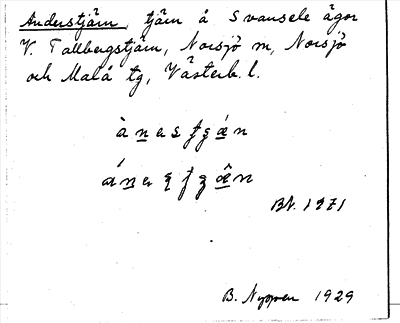 Anderstjärn, tjärn å Svansele ägor
V. Tallbergstjärn, Norsjö sn, Norsjö
och Malå tg, Västerb. l.
BN. 1271
B. Nygren 1929